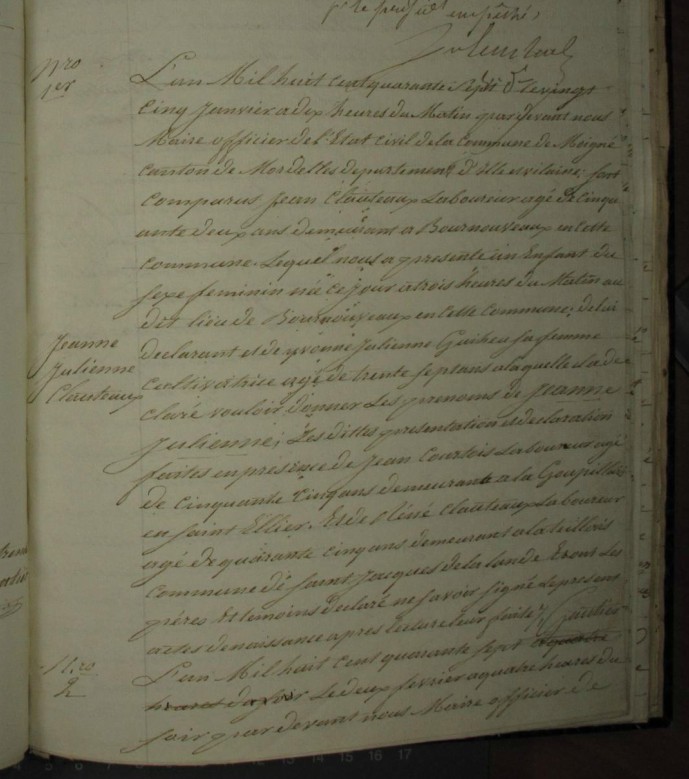 N.ro
1er
Jeanne
Julienne
Clauteaux
L'an Mil huit cent quarante sept le vingt
cinq Janvier a dix heures du Matin par devant nous
Maire officier de l'Etat Civil de la commune de Moigné
canton de Mordelles departement d'ille et vilaine; sont
comparus Jean Clauteaux Laboureur agé de cinqu
ante deux ans demeurant a Bournouveaux en cette
commune. Lequel nous a presenté un Enfant du
sexe feminin née ce jour a trois heures du Matin au
dit lieu de Bournouveaux en cette commune; de lui
declarant et de yvonne Julienne Guiheu sa femme
cultivatrice agé de trente sept ans a laquelle il a de
claré vouloir donner les prenoms de Jeanne
Julienne; Les dittes presentation et declaration
faites en présence de Jean Courtois Laboureur agé
de cinquante cinq ans demeurant a la Goupillais
en saint Ellier. Et de Réné Clauteaux Laboureur
agé de quarante cinq ans demeurant a la teillais
commune de saint Jacques de la lande Et ont Les
péres Et temoins declaré ne savoir signé le present
actes de naissance apres lecture leur faite;
N.ro
2
L'an Mil huit cent quarante sept
Le deux fevrier a quatre heures du
soir par devant nous Maire officier de